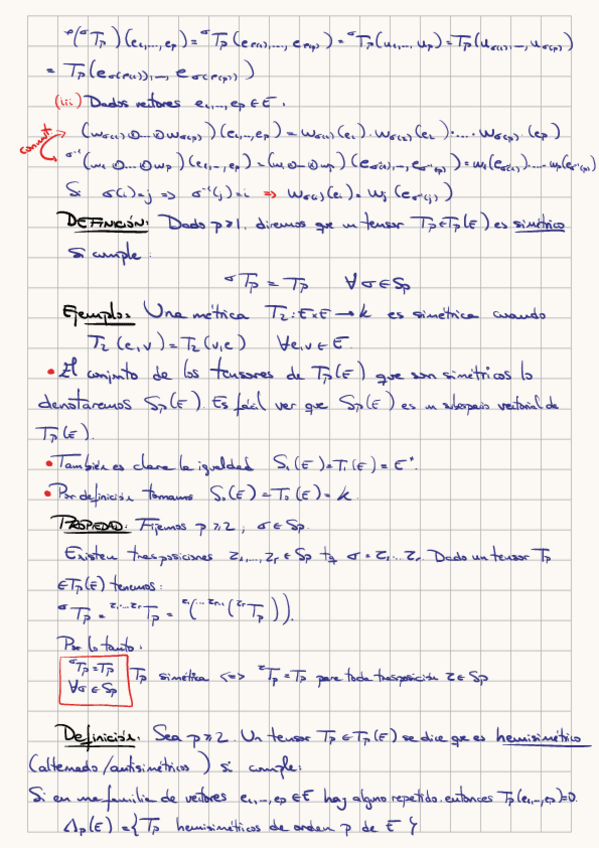 ᵖ(ᵟTₚ)(e₁,...,eₚ) = ᵟTₚ(e_ρ(1),...,e_ρ(p)) = ᵟTₚ(u₁,...,uₚ) = Tₚ(u_σ(1),...,u_σ(p))
= Tₚ(e_σ(ρ(1)),...,e_σ(ρ(p)))
(iii) Dados vectores e₁,...,eₚ ∈ E.
(w_σ(1)⊗...⊗w_σ(p))(e₁,...,eₚ) = w_σ(1)(e₁)·w_σ(2)(e₂)·...·w_σ(p)(eₚ)
σ⁻¹(w₁⊗...⊗wₚ)(e₁,...,eₚ) = (w₁⊗...⊗wₚ)(e_σ⁻¹(1),...,e_σ⁻¹(p)) = w₁(e_σ⁻¹(1))...wₚ(e_σ⁻¹(p))
Si σ(i)=j => σ⁻¹(j)=i => w_σ(i)(eᵢ) = wⱼ(e_σ⁻¹(j))
DEFINICIÓN: Dado p≥1, diremos que un tensor Tₚ∈Tₚ(E) es simétrico
si cumple:
ᵟTₚ = Tₚ ∀σ∈Sₚ
Ejemplo: Una métrica T₂: E×E → k es simétrica cuando
T₂(e,v) = T₂(v,e) ∀e,v ∈ E.
• El conjunto de los tensores de Tₚ(E) que son simétricos lo
denotaremos Sₚ(E). Es fácil ver que Sₚ(E) es un subespacio vectorial de
Tₚ(E).
• También es clara la igualdad S₁(E) = T₁(E) = E*.
• Por definición tomamos S₀(E) = T₀(E) = k.
PROPIEDAD: Fijemos p≥2, σ∈Sₚ.
Existen trasposiciones τ₁,...,τᵣ ∈ Sₚ tq σ = τ₁...τᵣ. Dado un tensor Tₚ
∈Tₚ(E) tenemos:
ᵟTₚ = τ₁...τᵣTₚ = τ₁(...τᵣ₋₁(τᵣTₚ)).
Por lo tanto:
ᵟTₚ = Tₚ
∀σ∈Sₚ
Tₚ simétrica <=> ᶻTₚ = Tₚ para toda trasposición τ∈Sₚ
Definición: Sea p≥2. Un tensor Tₚ∈Tₚ(E) se dice que es hemisimétrico
(alternado/antisimétrico) si cumple:
Si en una familia de vectores e₁,...,eₚ∈E hay alguno repetido, entonces Tₚ(e₁,...,eₚ)=0.
Λₚ(E) = {Tₚ hemisimétricos de orden p de E}